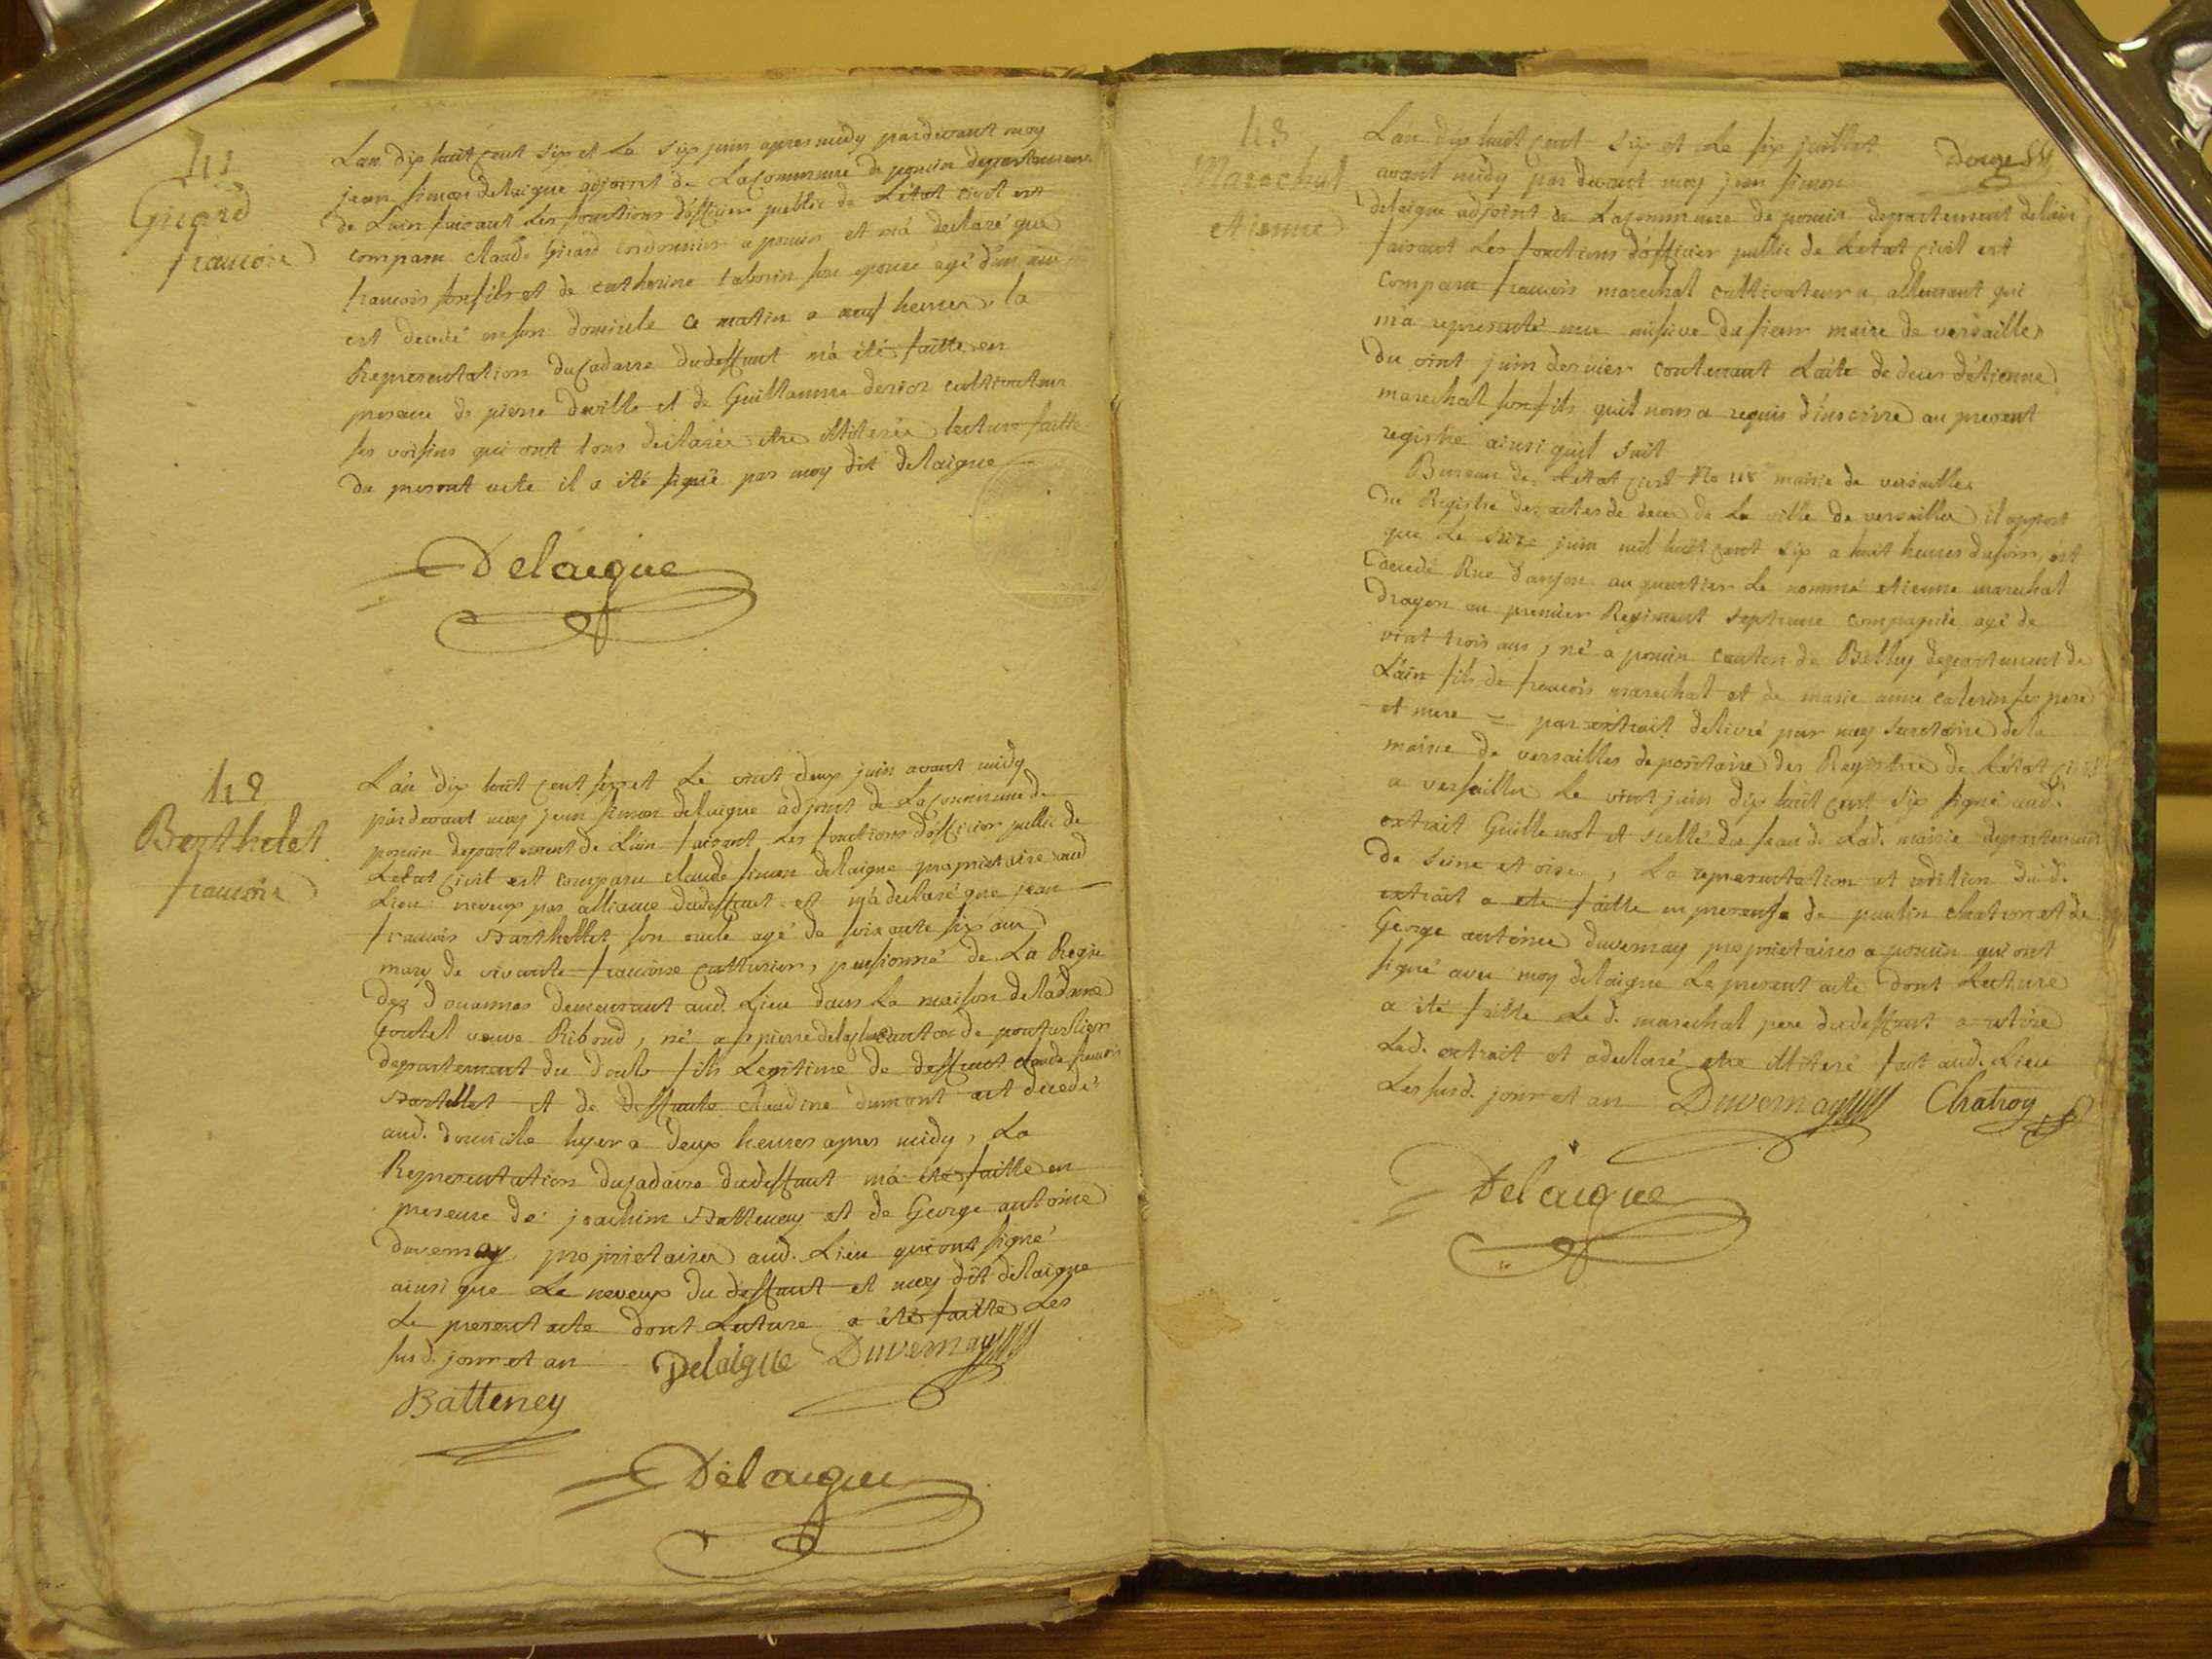 Girard
francois
Lan dix huit cent six et le six juin apres midy pardevant moy
jean simon delaigue adjoint de la commune de pouin departement
de Lain faisant les fonctions dofficier public de Létat civil est
comparu claude Girard cordonnier a pouin et m'a declaré que
francois son fils et de catherine tabouin son epouse agé d'un
est decedé en son domicile ce matin a neuf heures, la
Representation du cadavre du deffunt m'a été faitte en
presence de pierre deville et de Guillaume cultivateurs
ses voisins qui ont tous declarée etre illiterée lecture faitte
du present acte il a été signé par moy dit delaigue
Delaigue
Berthelet
francois
L'an dix huit cent six et le vint deux juin avant midy
pardevant moy jean simon delaigue adjoint de la commune de
pouin departement de Lain faisant les fonctions dofficier public de
Letat civil est comparu claude simon delaigue proprietaire aud
Lieu neveux par alliance du deffunt et m'a declaré que jean
francois Barthellet son oncle agé de soixante six ans
mary de vivante francoise catturier, pensionné de La Regie
des douannes demeurant aud. Lieu dans la maison de la dame
Goutel veuve Riboud, né a canton de pontarlier
departement du doub fils Legitime de deffunt claude francois
Bartellet et de deffunte claudine dumont est decedé
aud. domicile hyer a deux heures apres midy, La
Representation du cadavre du deffunt m'a été faitte en
presence de joachim Batteney et de George antoine
duvernay proprietaires aud. Lieu qui ont signé
ainsi que Le neveux du deffunt et moy dit delaigue
Le present acte dont Lecture a été faitte Les
susd. jour et an Delaigue Duvernay
Batteney
Delaigue
48
Marechal
etienne
L'an dix huit cent six et le six juillet
avant midy par devant moy jean simon
delaigue adjoint de La commune de pouin departement de Lain
faisant Les fonctions d'officier public de Letat civil est
comparu francois marechal cultivateur a allemant qui
m'a representé une missive du sieur maire de versailles
du vint juin dernier contenant L'acte de deces d'étienne
marechal son fils quil nous a requis d'inscrire au present
registre ainsi quil suit
Bureau de Letat civil No 118 mairie de versailles
Du Registre des actes de deces de la ville de versailles il appert
que Le seize juin mil huit cent six a huit heures du soir, est
decedé Rue d'anjou au quartier Le nommé etienne marechal
dragon au premier Regiment septieme compagnie agé de
vint trois ans, né a pouin canton de Belley departement de
L'ain fils de francois marechal et de marie anne caterin ses pere
et mere = par extrait delivré par moy secretaire de la
mairie de versailles depositaire des Registres de Létat civil
a versailles le vint juin dix huit cent six signé aud.
extrait Guillemot et scellé du seau de Lad. mairie departement
de seine et oise, La representation et redition dud.
extrait a ete faitte en presence de paulin chatron et de
George antoine duvernay proprietaires a pouin qui ont
signé avec moy delaigue Le present acte dont Lecture
a été faitte Le d. marechal pere du deffunt a retiré
Led. extrait et a declaré etre illiteré fait aud. Lieu
Les susd. jour et an Duvernay Chatron
Delaigue